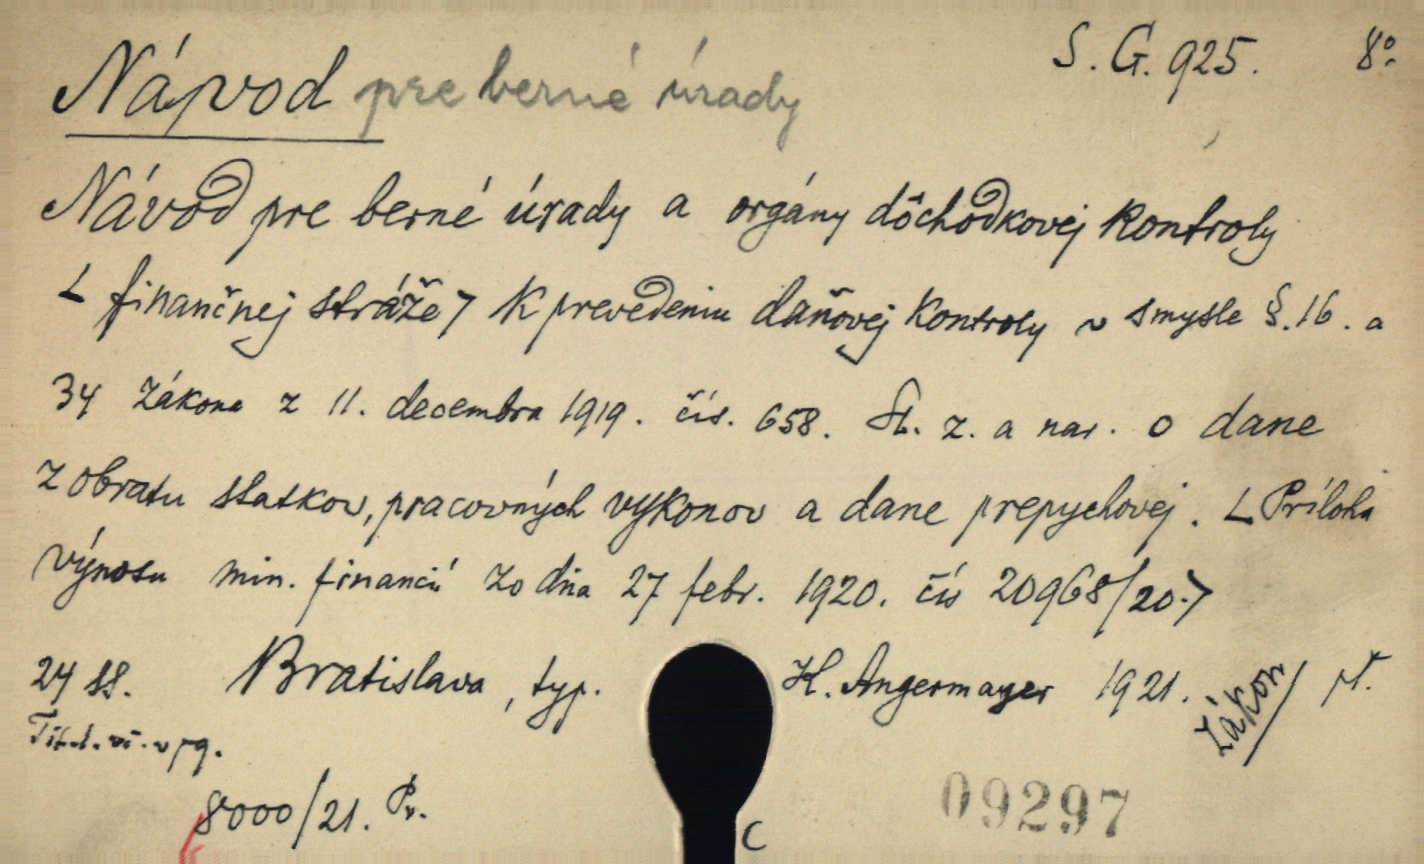 S. G. 925. 8°.
Návod pre berné úrady
Návod pre berné úrady a orgány dôchodkovej kontroly
< finančnej stráže > k prevedeniu daňovej kontroly v smysle §. 16. a
34 zákona z 11. decembra 1919. čís. 658. Sb. z. a nar. o dane
z obratu statkov, pracovných vykonov a dane prepychovej. < Príloha
výnosu min. financií zo dňa 27 febr. 1920. čís 20968/20.>
24 ss. Bratislava, typ. K. Angermayer 1921.
Zákon
8000/21. Pv.
09297
C